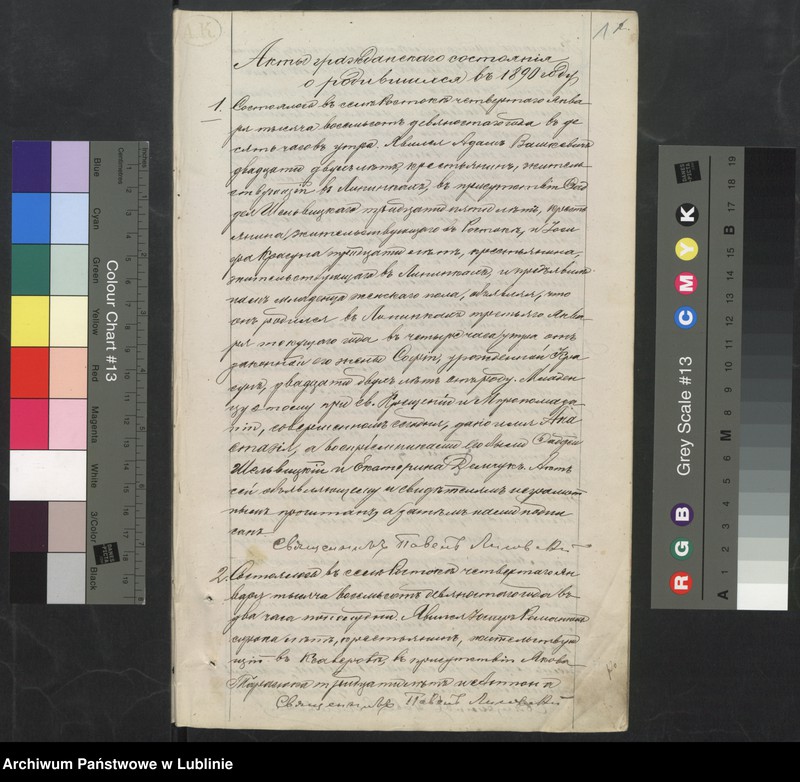 Акты гражданскаго состоянія
о родившихся въ 1890 году
1.
Состоялось въ селѣ Ростокѣ четвертаго Янва-
ря тысяча восемьсотъ девяностаго года въ де-
сять часовъ утра. Явился Адамъ
двадцати двухъ лѣтъ, крестьянинъ, житель-
ствующій въ въ присутствіи
Шельвицкаго тридцати пяти лѣтъ, кресть-
янина, жительствующаго въ Ростокѣ, и Іоси-
фа тридцати лѣтъ, крестьянина,
жительствующаго въ и предъявилъ
намъ младенца женскаго пола, объявляя, что
онъ родился въ третьяго Янва-
ря текущаго года въ четыре часа утра отъ
законной его жены Софіи, урожденной Кра-
сунъ, двадцати двухъ лѣтъ отъ роду. Младен-
цу этому при Св. Крещеніи и Мѵропомаза-
ніи, совершенномъ сегодня, дано имя Ана-
стасія, а воспріемниками его были
Шельвицкій и Екатерина Демчукъ. Актъ
сей объявляющему и свидѣтелямъ неграмот-
нымъ прочитанъ, а затѣмъ нами подпи-
санъ.
Священникъ Павелъ
2.
Состоялось въ селѣ Ростокѣ четвертаго Ян-
варя тысяча восемьсотъ девяностаго года въ
два часа пополудни. Явился
сорока лѣтъ, крестьянинъ, жительствую-
щій въ Ксаверовкѣ, въ присутствіи Якова
тридцати лѣтъ и Антона
Священникъ Павелъ
Colour Chart #13
Blue
Cyan
Green
Yellow
Red
Magenta
White
3/Color
Black
Centimetres
Inches
Grey Scale #13
R G B
C M Y K
A 1 2 3 4 5 6 M 8 9 10 11 12 13 14 15 B 17 18 19
Archiwum Państwowe w Lublinie